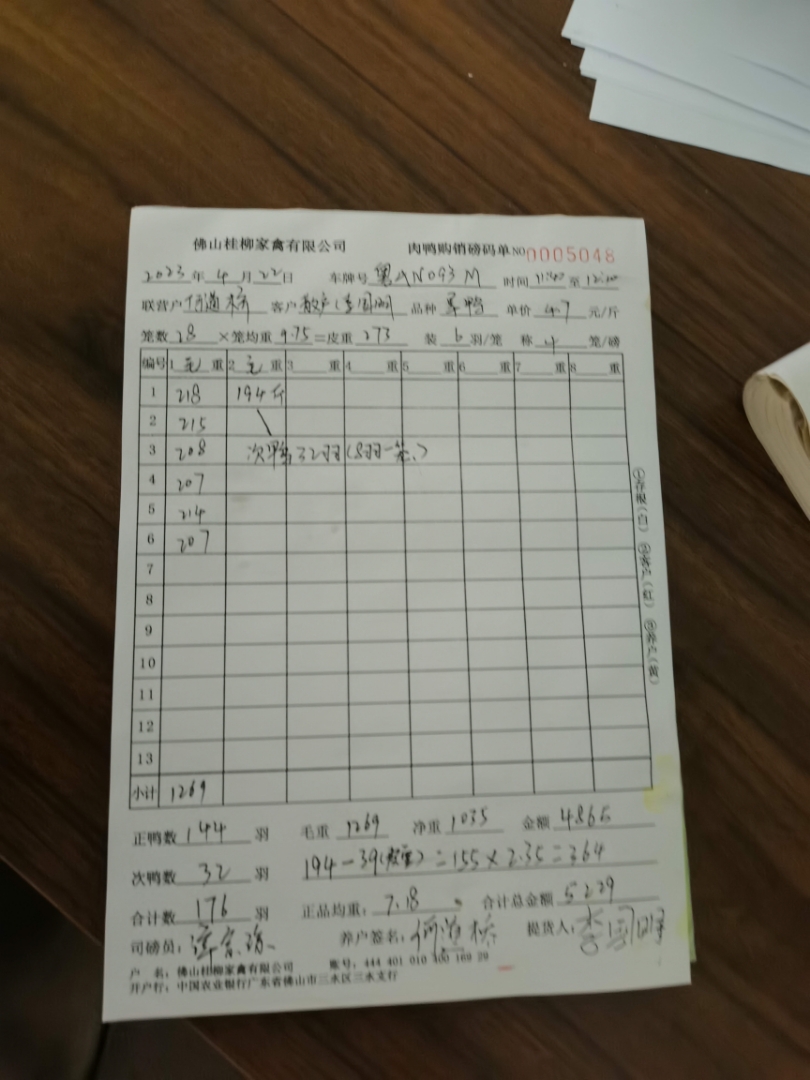 佛山桂柳家禽有限公司 肉鸭购销磅码单 NO 0005048
2023年4月22日 车牌号 AN093M 时间 至
联营户 何道桥 客户 散户(李国明) 品种 单价 4.7 元/斤
笼数 28 ×笼均重 9.75 =皮重 273 装 6 羽/笼 称 4 笼/磅
编号 1 毛 重 2 毛 重 3 重 4 重 5 重 6 重 7 重 8 重
1 218 194斤
2 215
3 208 次鸭32羽(8羽一笼)
4 207
5 214
6 207
7
8
9
10
11
12
13
小计 1269
正鸭数 144 羽 毛重 1269 净重 1035 金额 4865
次鸭数 32 羽 194-39(皮重)=155×2.35=364
合计数 176 羽 正品均重: 7.18 合计总金额 5229
司磅员: 养户签名: 何道桥 提货人: 李国明
户 名: 佛山桂柳家禽有限公司 账号: 444 401 010 400 169 29
开户行: 中国农业银行广东省佛山市三水区三水支行
①存根(白) ②客户(红) ③养户(黄)